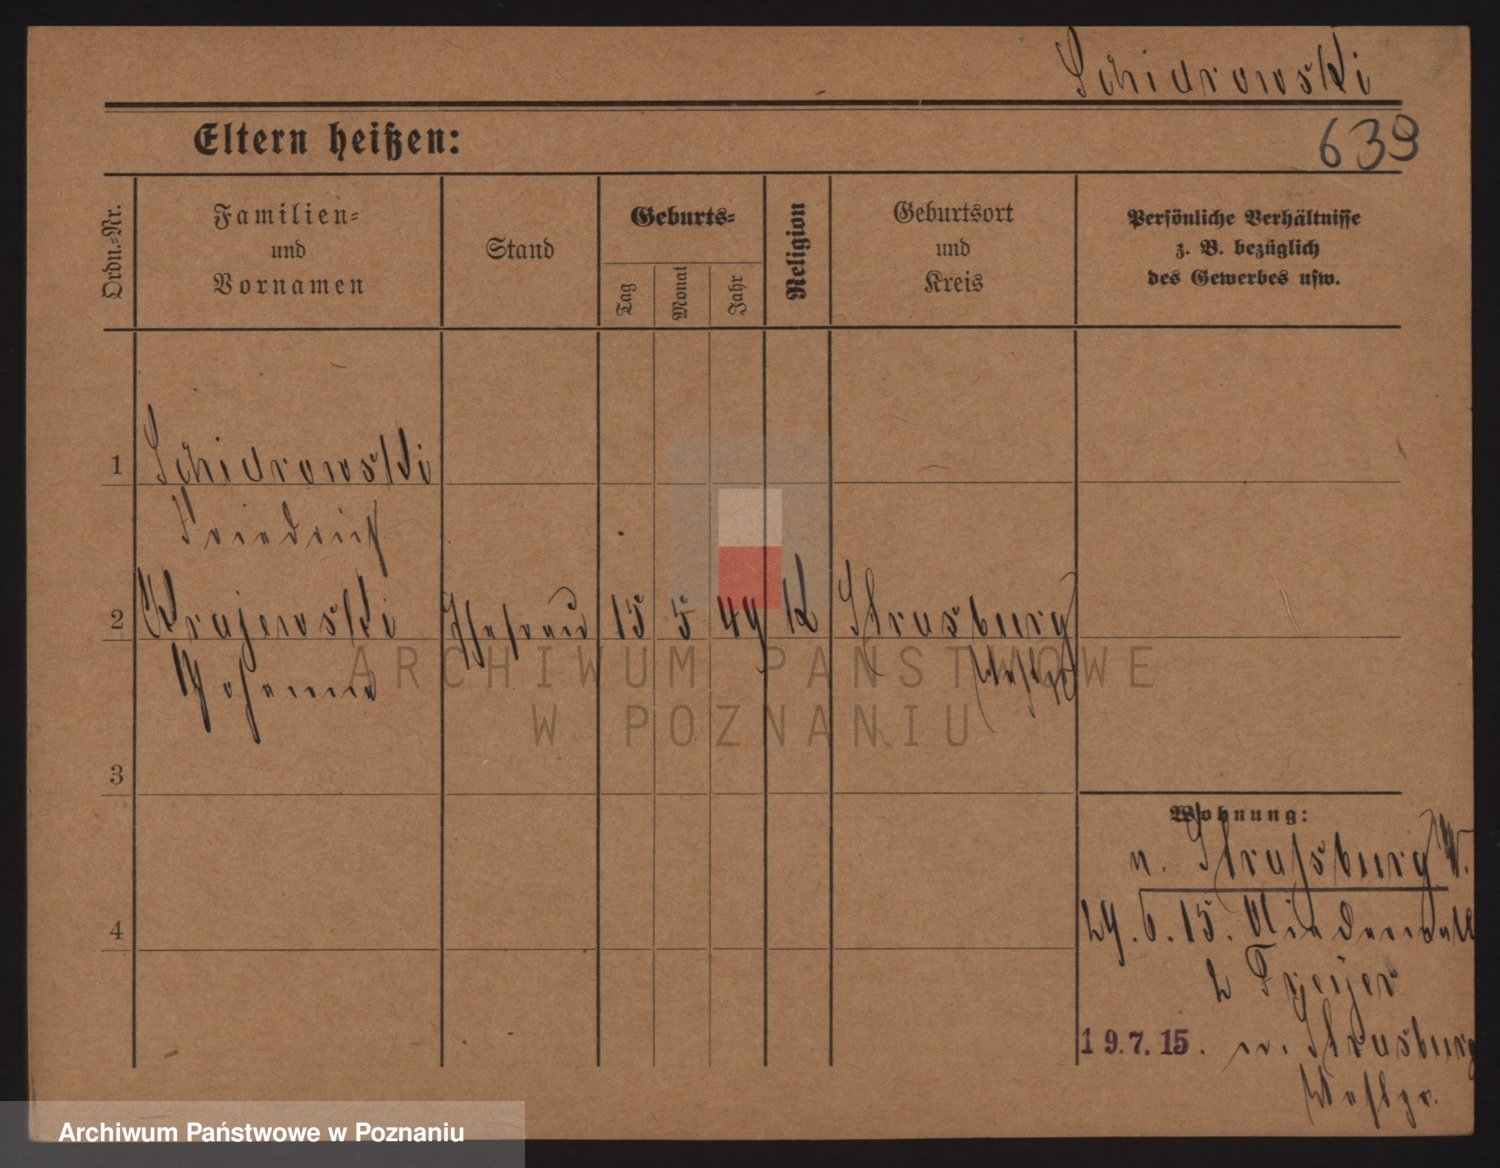 Schidrowski
Eltern heißen:
639
Ordn.-Nr.
Familien-
und
Vornamen
Stand
Geburts-
Tag
Monat
Jahr
Religion
Geburtsort
und
Kreis
Persönliche Verhältnisse
z. B. bezüglich
des Gewerbes usw.
1
Schidrowski
Friedrich
2
Krajewski
Ehefrau
15
5
49
K
Strasburg
Westpr
Johanna
3
Wohnung:
n. Straßburg W.
4
29.6.15. Niederwall
2 Freyer
19.7.15. n. Strasburg
Westpr.
ARCHIWUM PAŃSTWOWE
W POZNANIU
Archiwum Państwowe w Poznaniu